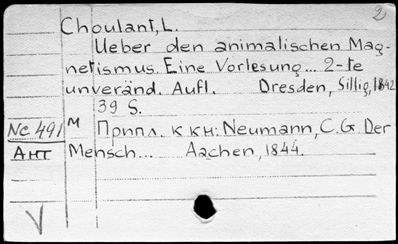 2
Choulant, L.
Ueber den animalischen Mag-
netismus. Eine Vorlesung... 2-te
unveränd. Aufl. Dresden, Sillig, 1842
39 S.
Nc 491 M Припл. к кн: Neumann, C.G. Der
Ант Mensch... Aachen, 1844.
V